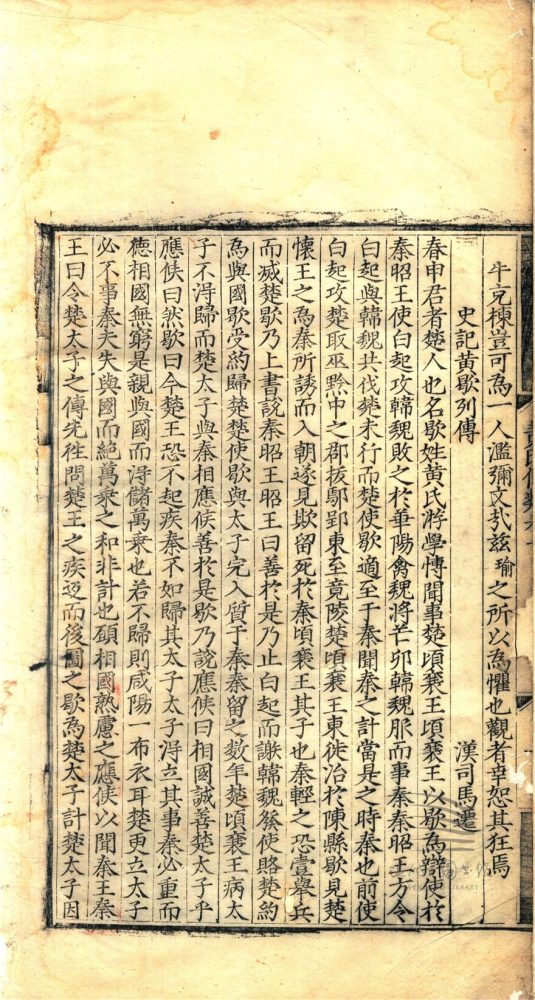 牛充棟豈可為一人濫彌文㢤茲瑜之所以為懼也觀者幸恕其狂焉
史記黄歇列傳 漢司馬遷
春申君者楚人也名歇姓黄氏游學愽聞事楚頃襄王頃襄王以歇為辯使於
秦昭王使白起攻韓魏敗之於華陽禽魏將芒卯韓魏服而事秦秦昭王方令
白起與韓魏共伐楚未行而楚使歇適至于秦聞秦之計當是之時秦也前使
白起攻楚取巫黔中之郡拔鄢郢東至竟陵楚頃襄王東徙治於陳縣歇見楚
懷王之為秦所誘而入朝遂見欺留死於秦頃襄王其子也秦輕之恐壹舉兵
而㓕楚歇乃上書說秦昭王昭王曰善於是乃止白起而謝韓魏發使賂楚約
為與國歇受約歸楚楚使歇與太子完入質于秦秦留之数年楚頃襄王病太
子不淂歸而楚太子與秦相應侯善於是歇乃說應侯曰相國誠善楚太子乎
應侯曰然歇曰今楚王恐不起疾秦不如歸其太子太子淂立其事秦必重而
徳相國無窮是親與國而淂儲萬乗也若不歸則咸陽一布衣耳楚更立太子
必不事秦夫失與國而絶萬乗之和非計也頋相國熟慮之應侯以聞秦王秦
王曰令楚太子之傅先徃問楚王之疾返而後圖之歇為楚太子計楚太子因